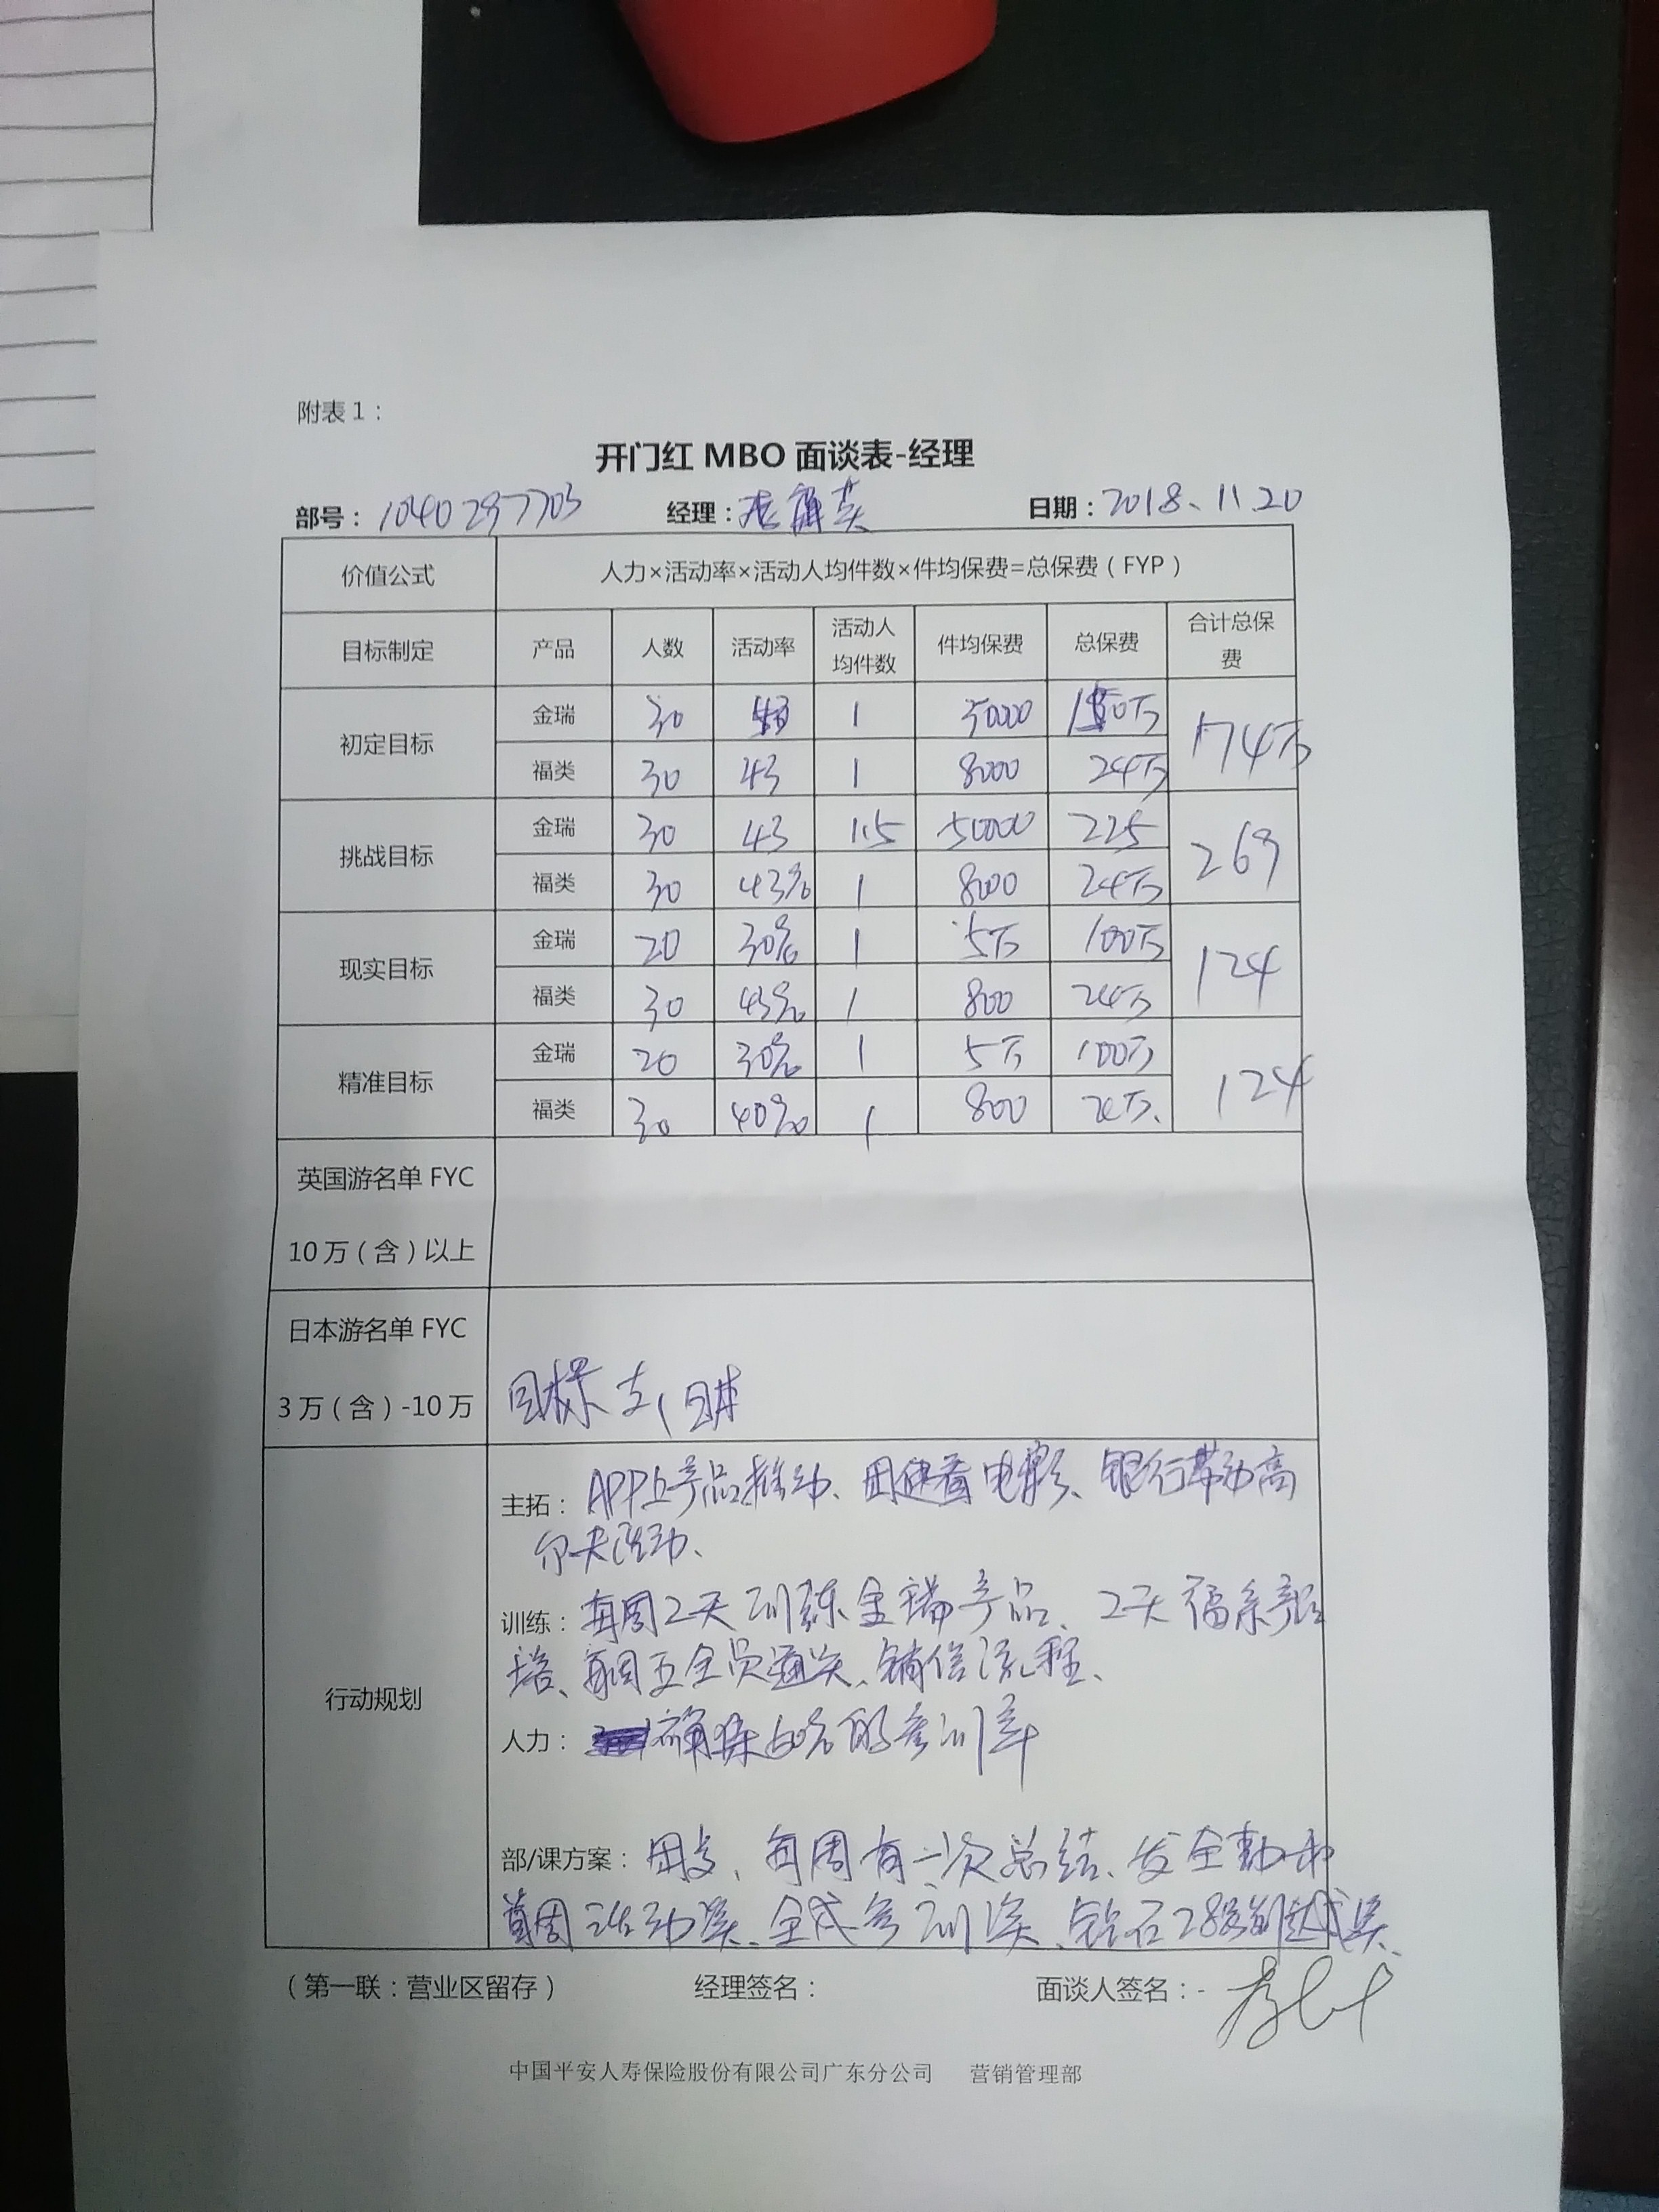 附表1：
开门红 MBO 面谈表-经理
部号：1040297703 经理： 日期：2018、11.20
价值公式 人力×活动率×活动人均件数×件均保费=总保费（FYP）
目标制定 产品 人数 活动率 活动人均件数 件均保费 总保费 合计总保费
初定目标 金瑞 30 1 50000 150万 174万
福类 30 43 1 8000 24万
挑战目标 金瑞 30 43 1.5 50000 225 269
福类 30 43% 1 8000 24万
现实目标 金瑞 20 30% 1 5万 100万 124
福类 30 43% 1 800 24万
精准目标 金瑞 20 30% 1 5万 100万 124
福类 30 40% 1 800 24万、
英国游名单 FYC
10万（含）以上
日本游名单 FYC
3万（含）-10万 目标 日本
行动规划
主拓：APP上产品推动、看电影、银行带动高
尔夫活动、
训练：每周2天训练金瑞产品、2天福系产品
培、每周五全员通关、销售流程、
人力：确保60%的参训率
部/课方案：每周有一次总结、发全勤和
首周活动奖、全成参训奖、钻石2级别达成奖、
（第一联：营业区留存） 经理签名： 面谈人签名：
中国平安人寿保险股份有限公司广东分公司 营销管理部